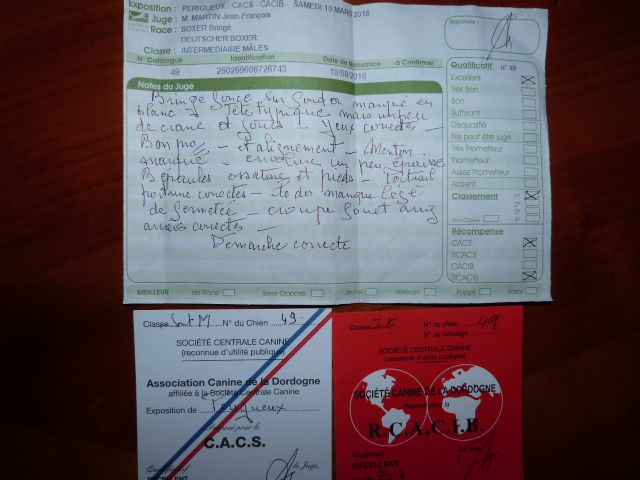 Exposition : PERIGUEUX - CACS - CACIB - SAMEDI 10 MARS 2018
Juge : M. MARTIN Jean-François
Race : BOXER Bringé
DEUTSCHER BOXER
Classe : INTERMEDIAIRE MÂLES
N° Catalogue Identification Date de Naissance à Confirmer
49 250269606726743 13/08/2016
Signature :
Notes du Juge
Bringé foncé sur fond or marqué en
blanc Tête typique mais un peu
de crane et - Yeux corrects -
Bon - et alignement - Menton
marqué - encolure un peu épaisse
B épaules ossature et pieds - Poitrail
poitrine corrects - le dos manque
de fermeté - croupe
correctes -
Démarche correcte
MEILLEUR de Race Sexe Opposé Jeune Vétéran Puppy Baby
Qualificatif n° 49
Excellent
Très Bon
Bon
Suffisant
Disqualifié
Ne peut être jugé
Très Prometteur
Prometteur
Assez Prometteur
Absent
Classement
Non Classé
Récompense
CACS
RCACS
CACIB
RCACIB
Classe M N° du Chien 49
SOCIÉTÉ CENTRALE CANINE
(reconnue d'utilité publique)
Association Canine de la Dordogne
affiliée à la Société Centrale Canine
Exposition de Périgueux
Proposé pour le
C.A.C.S.
Qualificatif le Juge,
EXCELLENT
Classe Int N° du chien 49
N° du tatouage
SOCIÉTÉ CENTRALE CANINE
(reconnue d'utilité publique)
SOCIÉTÉ CANINE DE LA DORDOGNE
Proposé pour la
R.C.A.C.I.B.
Qualificatif Le Juge
EXCELLENT